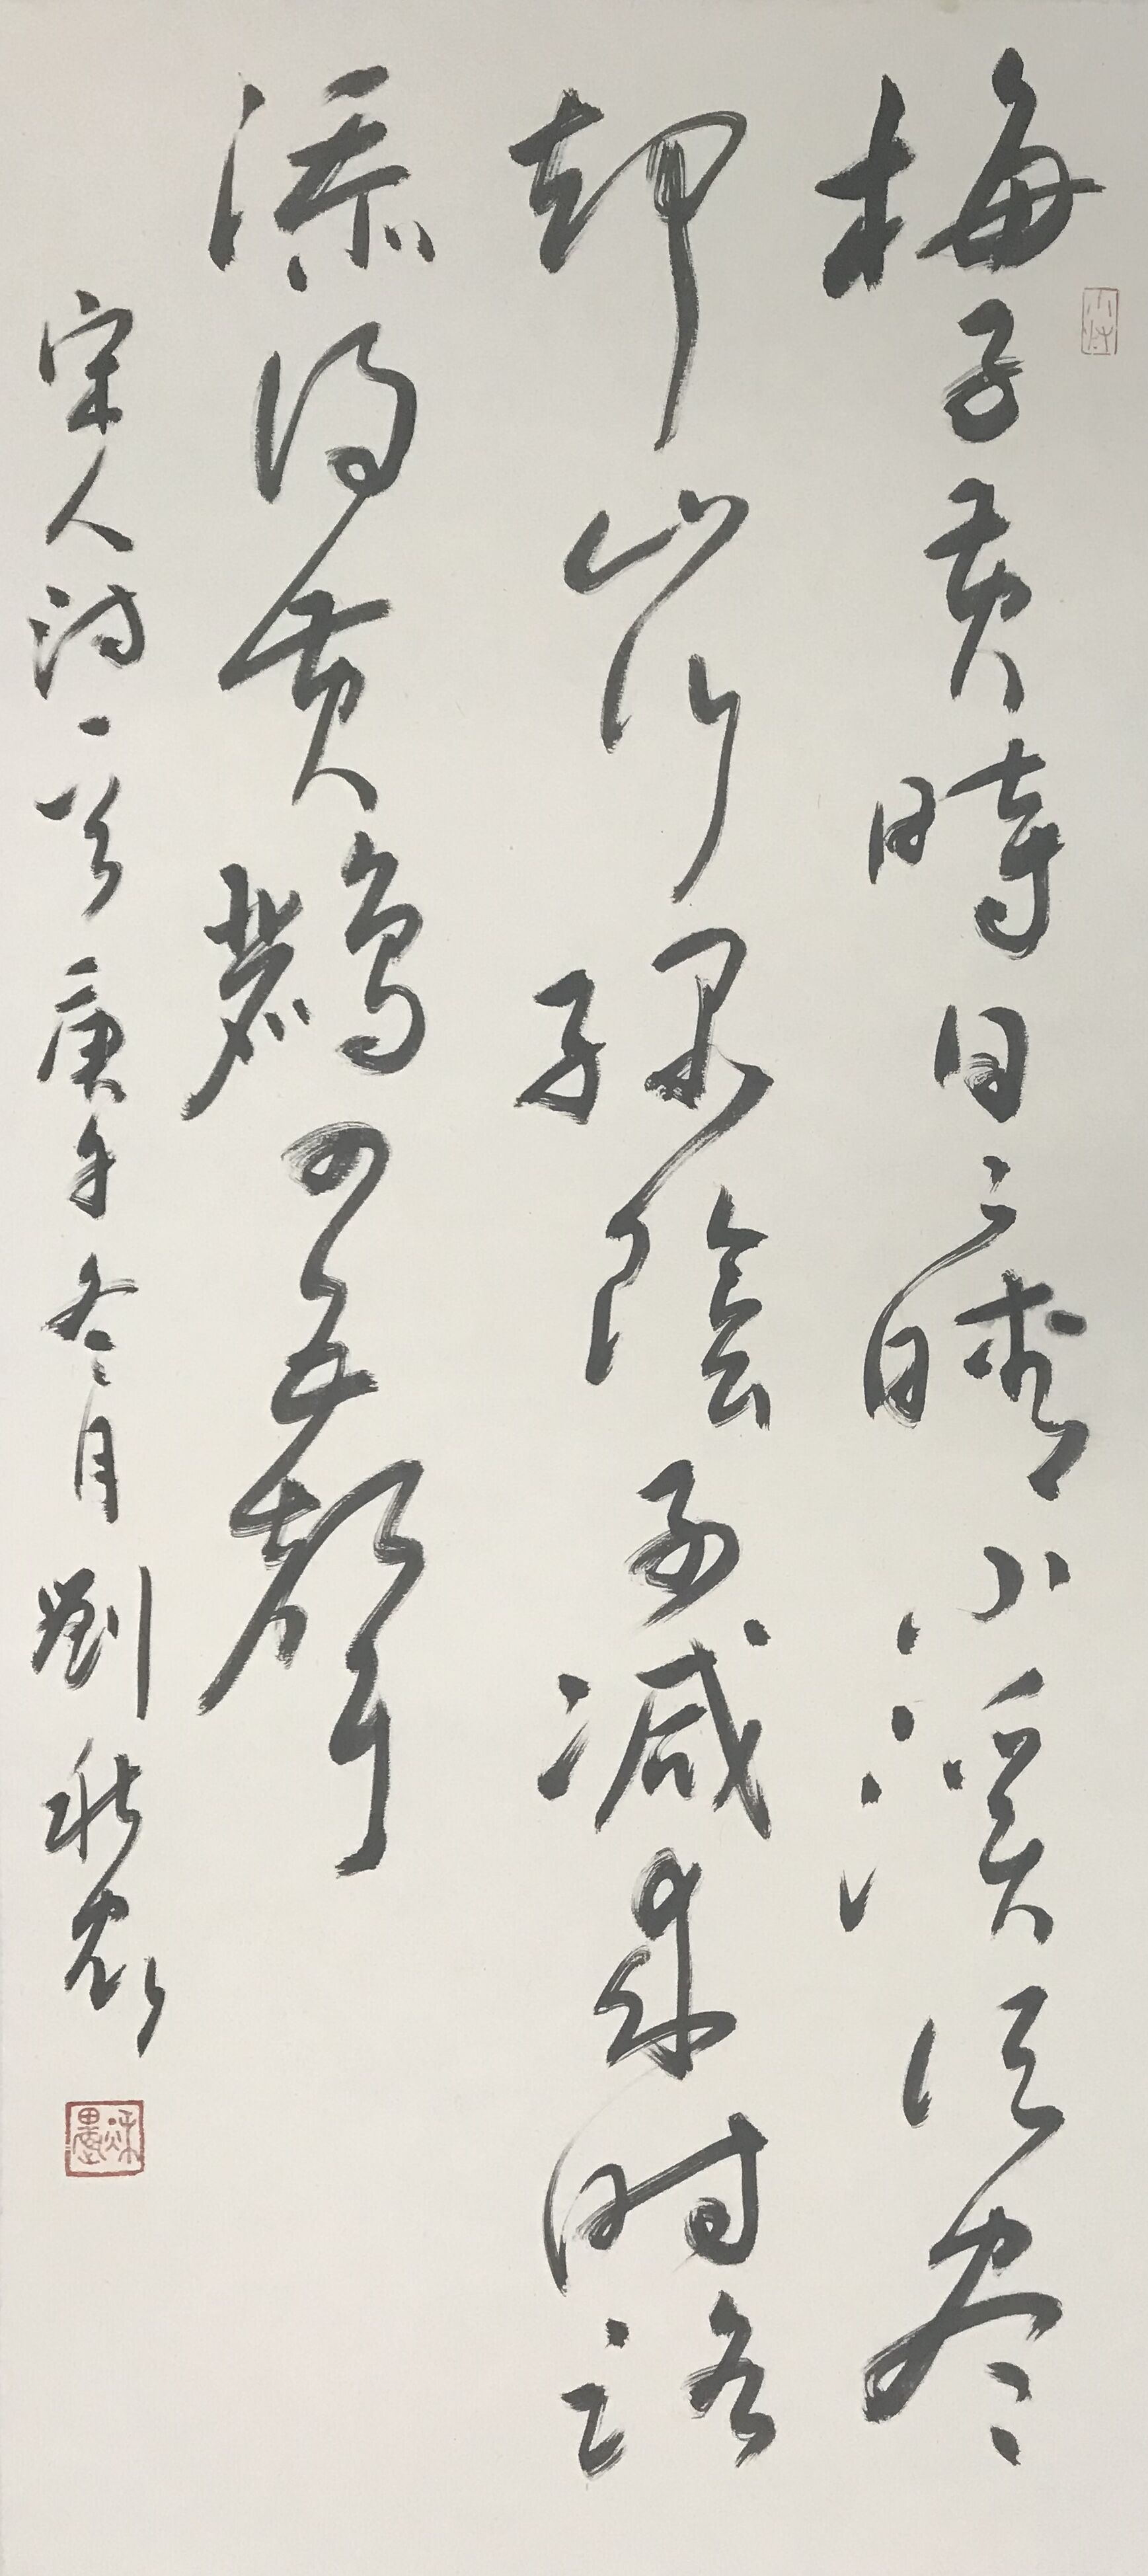 梅子黄時日日晴小溪泛尽
却山行綠陰不減来時路
添得黄鸝四五聲
宋人詩一首庚午冬月劉秋農